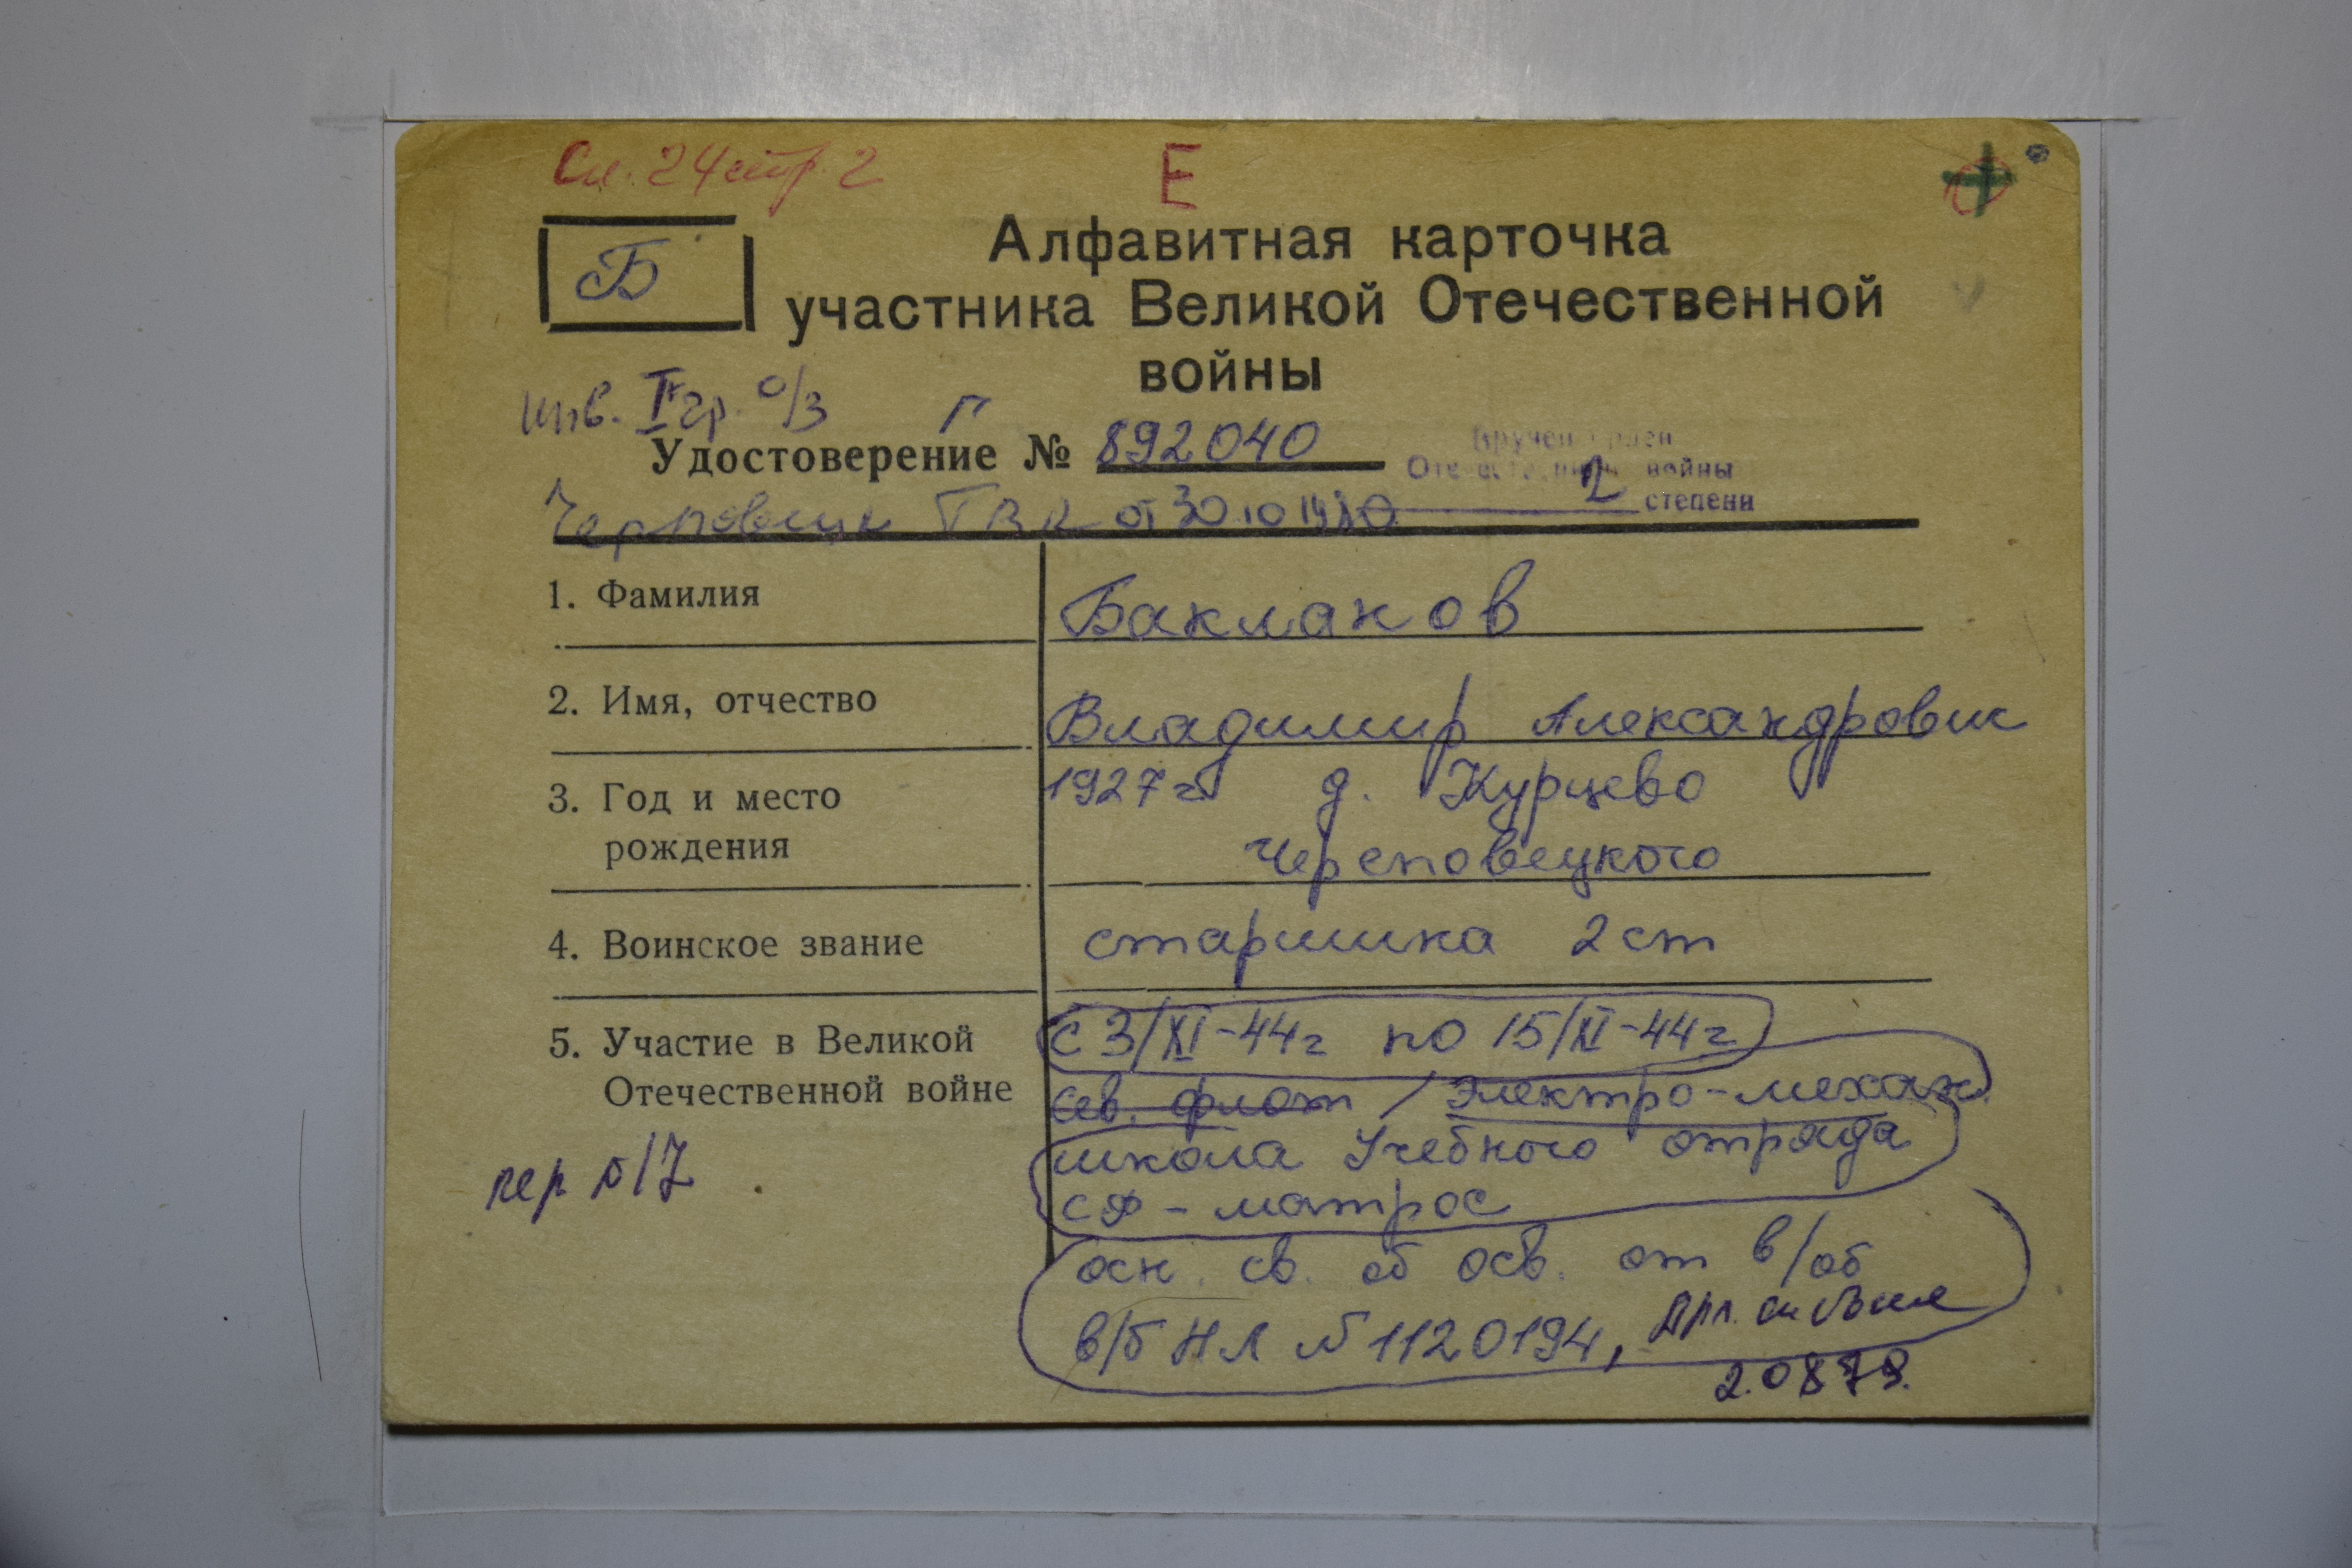 Сп. 24 стр. 2
Е
Б
Алфавитная карточка
участника Великой Отечественной
войны
инв. II гр. о/з
Г
Удостоверение № 892040
Отечественной войны
2 степени
ГВК от 30 10 1980
1. Фамилия
Бакланов
2. Имя, отчество
Владимир Александрович
3. Год и место
рождения
1927 г д. Курцево
Череповецкого
4. Воинское звание
старшина 2 ст
5. Участие в Великой
Отечественной войне
с 3/XI-44г по 15/XI-44г
Сев. флот / Электро-механ.
школа Учебного отряда
СФ - матрос
осн. св. об осв. от в/об
в/б НЛ № 1120194,